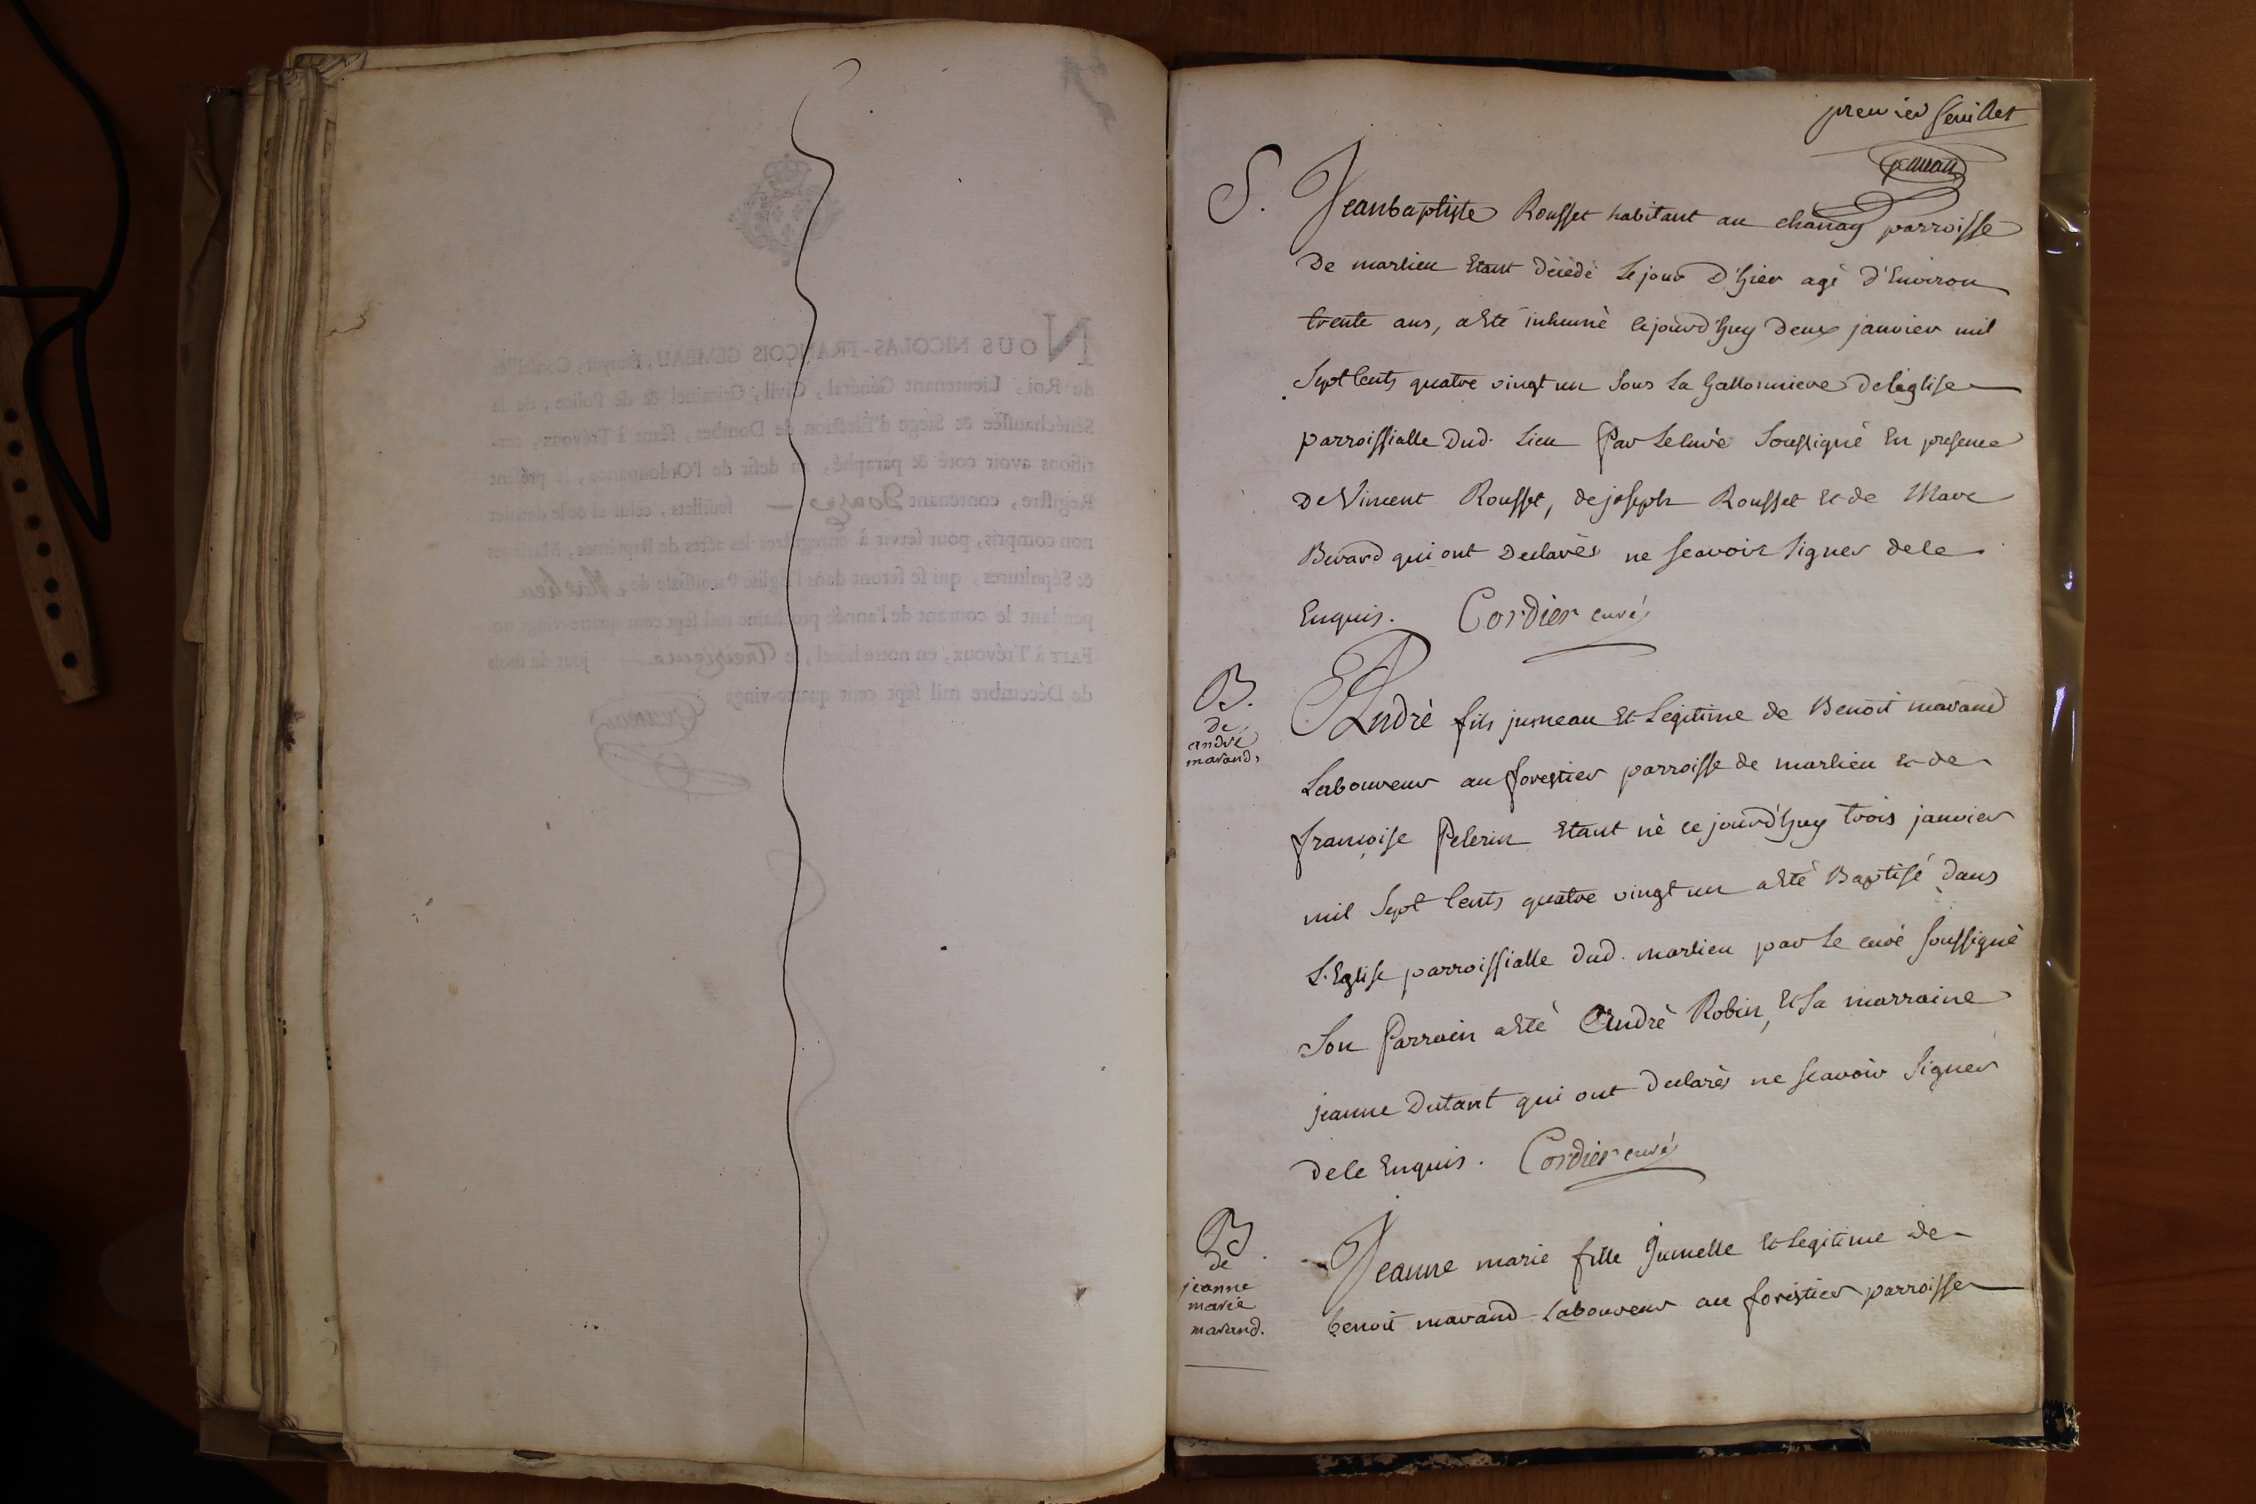 premier feuillet
Gemeau
S. Jeanbaptiste Rousset habitant au chanay parroisse
De marlieu Etant décèdé le jour D'hier agé d'Environ
trente ans, aEté inhumè cejourd'huy Deux janvier mil
Sept Cents quatre vingt un Sous La Gallonniere De léglise
parroissialle Dud. Lieu Par Le Curé Soussigné En presence
De Vincent Rousset, de joseph Rousset et de Marc
Berard qui ont Declarés ne Scavoir Signer de ce
Enquis. Cordier curé
B.
de
andré
marand,
André fils jumeau Et Légitime de Benoit marand
Laboureur au forestier parroisse de marlieu et de
françoise Pelerin Etant nè cejourd'huy trois janvier
mil Sept Cents quatre vingt un aEté Baptisé dans
L'Eglise parroissialle dud. marlieu par Le curé soussigné
Son Parrain aEté André Robin, Et sa marraine
jeanne Dutant qui ont Declarés ne scavoir Signer
de ce Enquis. Cordier curé
B.
de
jeanne
marie
marand.
Jeanne marie fille Jumelle et Legitime de
benoit marand Laboureur au forestier parroisse
NOUS NICOLAS-FRANÇOIS GEMEAU, Ecuyer, Conseiller
du Roi, Lieutenant Général, Civil, Criminel & de Police, de la
Sénéchaussée & Siége d'Élection de Dombes, séant à Trévoux, cer-
tifions avoir coté & paraphé, au desir de l'Ordonnance, le présent
Registre, contenant Douze feuillets, celui-ci & le dernier
non compris, pour servir à enregistrer les actes de Baptêmes, Mariages
& Sépultures, qui se feront dans l'Eglise Paroissiale de Marlieu
pendant le courant de l'année prochaine mil sept cent quatre-vingt-un
FAIT à Trévoux, en notre hôtel, le treizieme jour du mois
de Décembre mil sept cent quatre-vingt
Gemeau